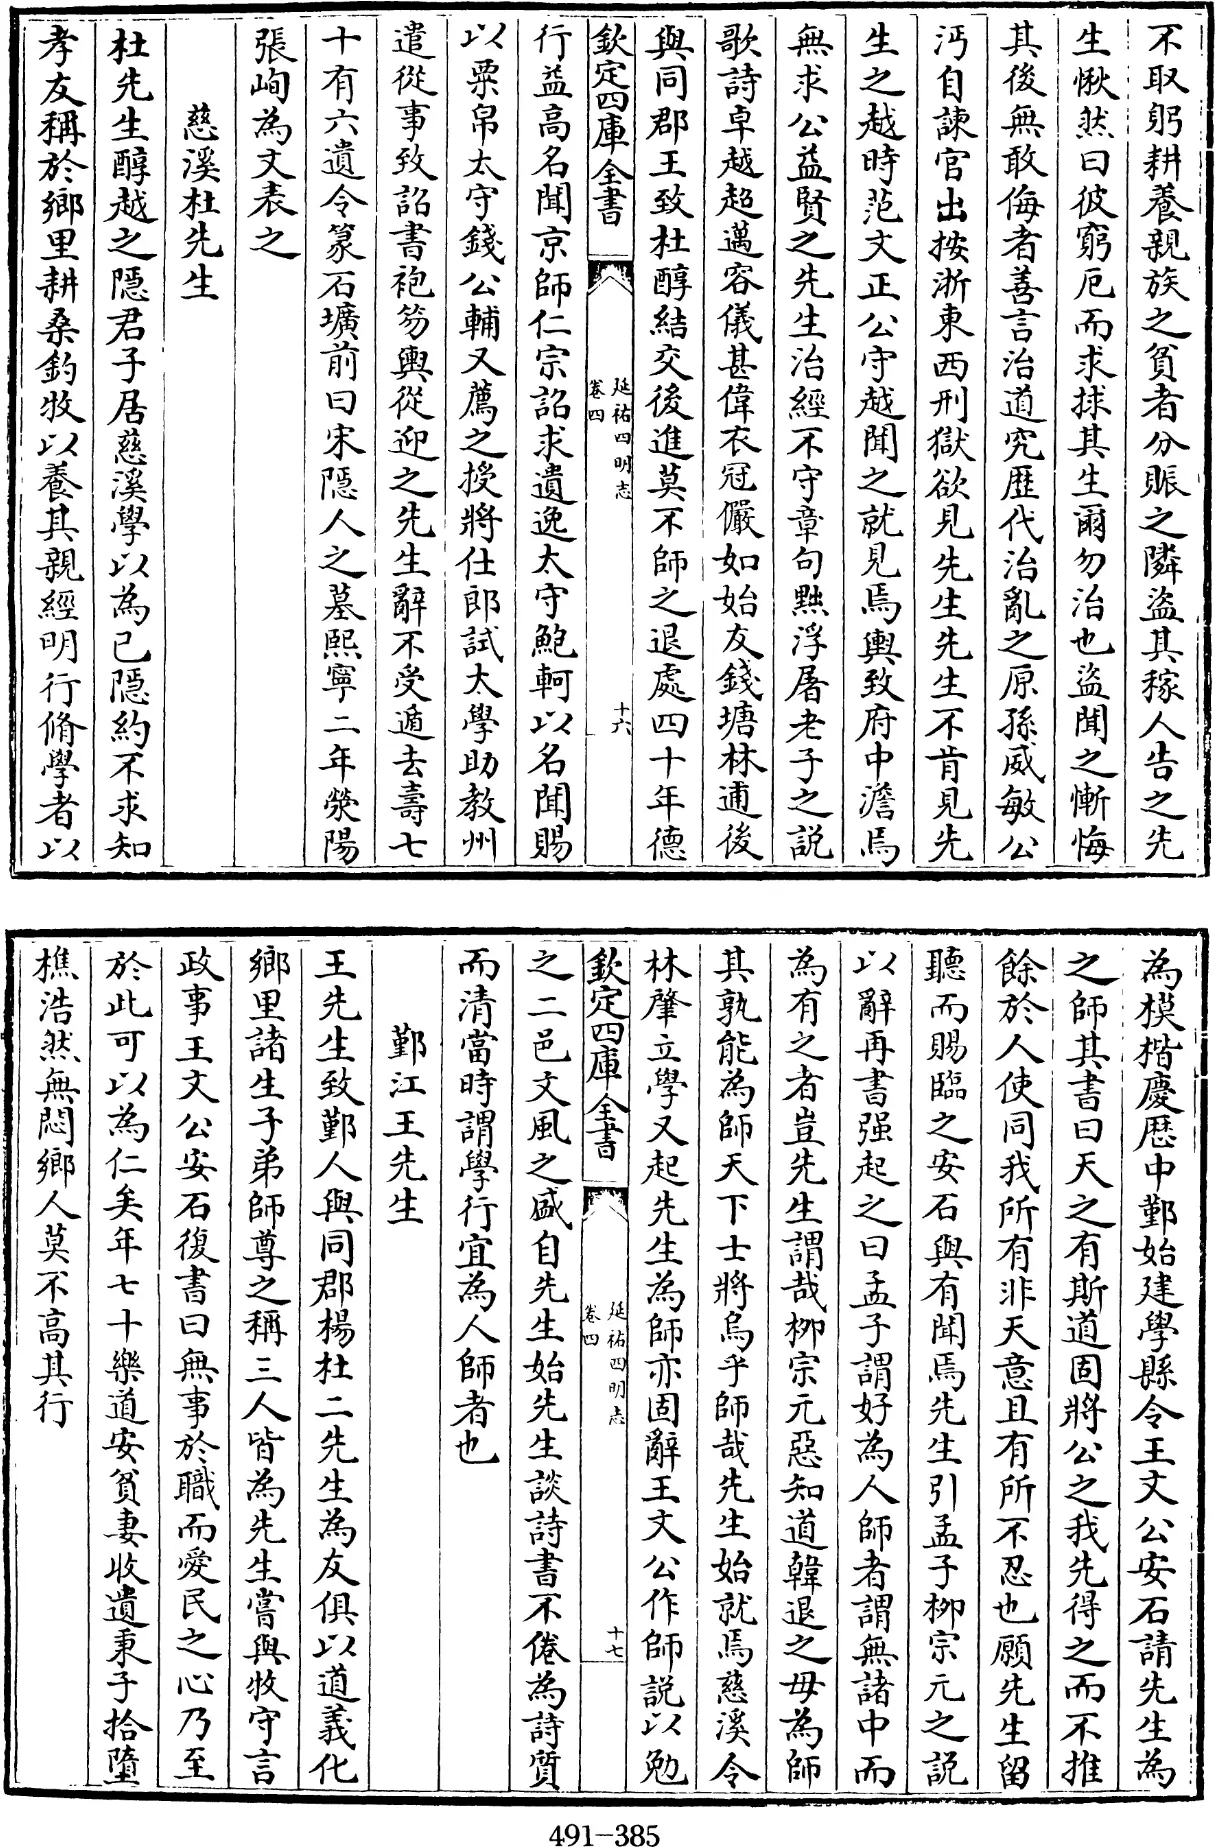 不取躬耕養親族之貧者分賑之隣盜其稼人告之先
生愀然曰彼窮厄而求捄其生爾勿治也盜聞之慚悔
其後無敢侮者善言治道究歷代治亂之原孫威敏公
沔自諫官出按浙東西刑獄欲見先生先生不肯見先
生之越時范文正公守越聞之就見焉輿致府中澹焉
無求公益賢之先生治經不守章句黜浮屠老子之説
歌詩卓越超邁容儀甚偉衣冠儼如始友錢塘林逋後
與同郡王致杜醇結交後進莫不師之退處四十年德
欽定四庫全書
延祐四明志
卷四
十六
行益高名聞京師仁宗詔求遺逸太守鮑軻以名聞賜
以粟帛太守錢公輔又薦之授將仕郎試太學助教州
遣從事致詔書袍笏輿從迎之先生辭不受遁去壽七
十有六遺令篆石壙前曰宋隠人之墓熙寧二年滎陽
張峋為文表之
慈溪杜先生
杜先生醇越之隠君子居慈溪學以為己隠約不求知
孝友稱於鄉里耕桑釣牧以養其親經明行脩學者以
為模楷慶歴中鄞始建學縣令王文公安石請先生為
之師其書曰天之有斯道固將公之我先得之而不推
餘於人使同我所有非天意且有所不忍也願先生留
聽而賜臨之安石與有聞焉先生引孟子柳宗元之説
以辭再書强起之曰孟子謂好為人師者謂無諸中而
為有之者豈先生謂哉柳宗元惡知道韓退之毋為師
其孰能為師天下士將烏乎師哉先生始就焉慈溪令
林肇立學又起先生為師亦固辭王文公作師説以勉
欽定四庫全書
延祐四明志
卷四
十七
之二邑文風之盛自先生始先生談詩書不倦為詩質
而清當時謂學行宜為人師者也
鄞江王先生
王先生致鄞人與同郡楊杜二先生為友俱以道義化
鄉里諸生子弟師尊之稱三人皆為先生嘗與牧守言
政事王文公安石復書曰無事於職而愛民之心乃至
於此可以為仁矣年七十樂道安貧妻收遺秉子拾墮
樵浩然無悶鄉人莫不高其行
491-385